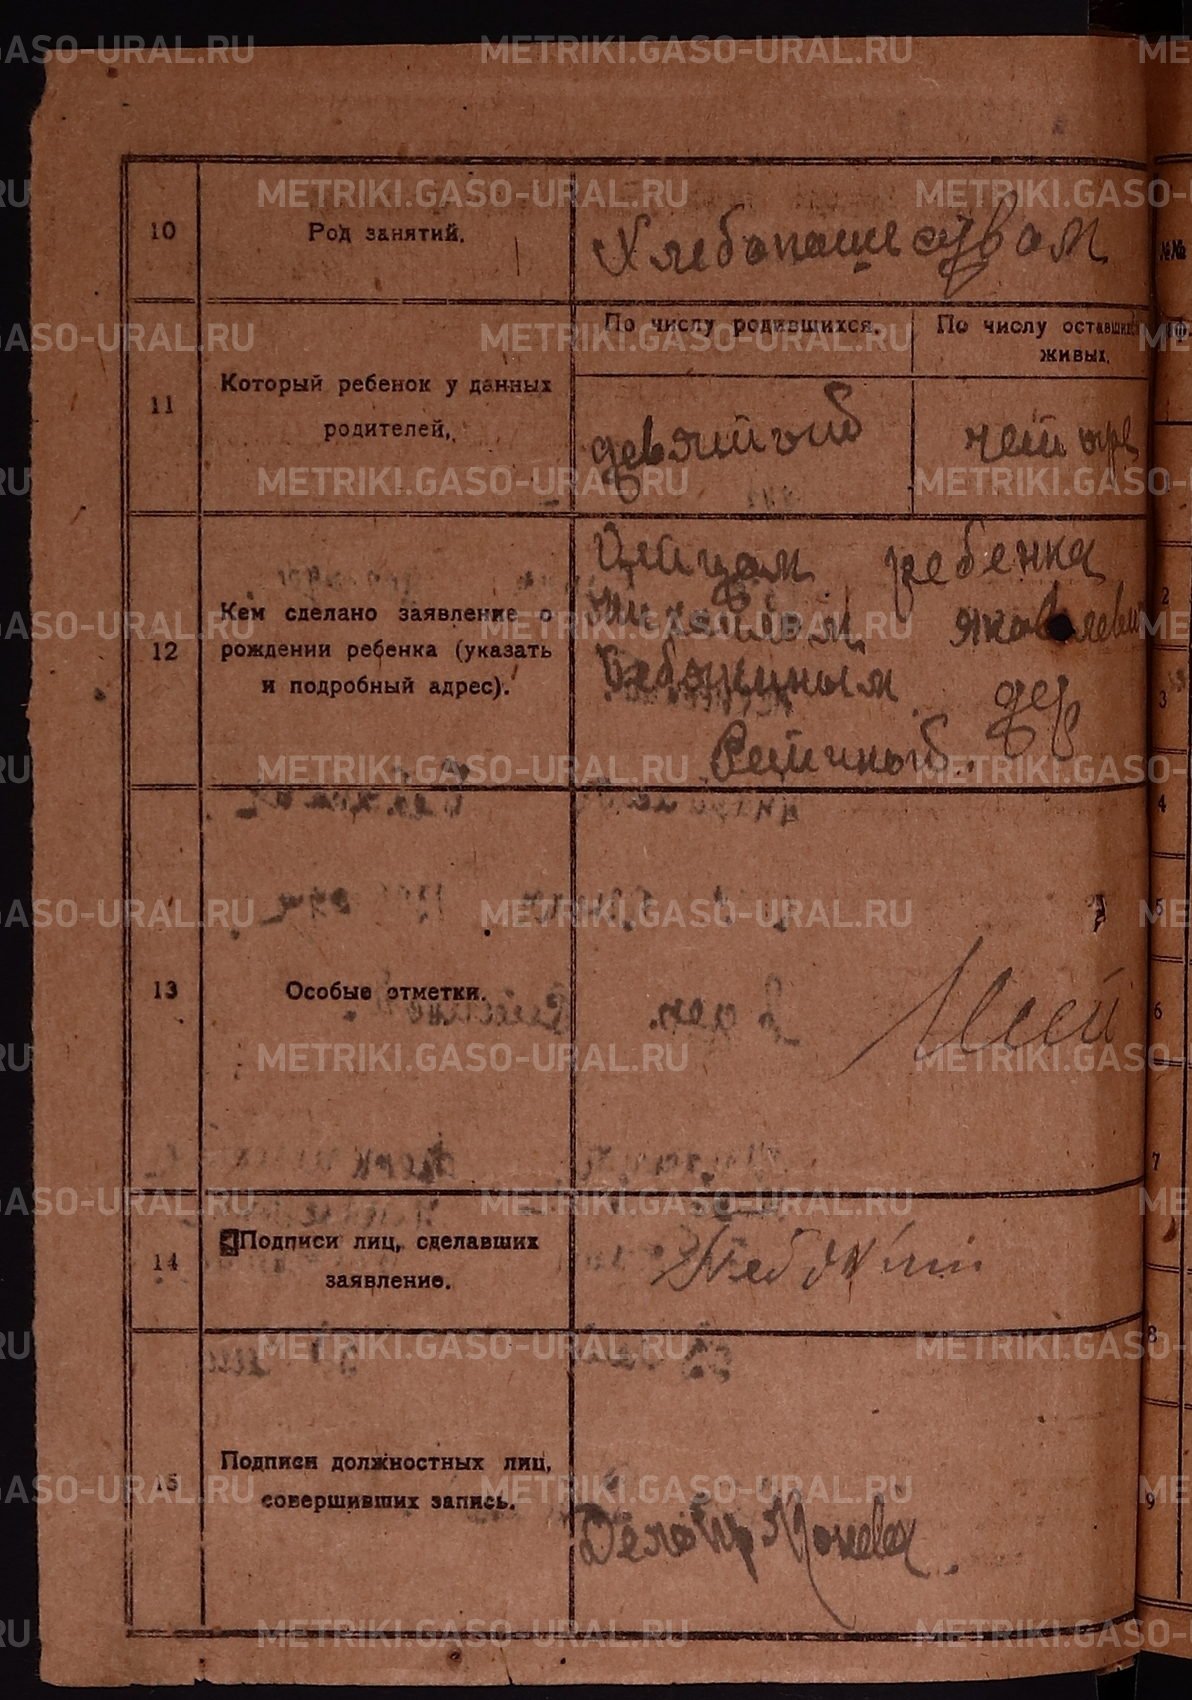 10
Род занятий.
Хлебопашеством
11
Который ребенок у данных
родителей.
По числу родившихся.
По числу оставших
живых.
девятый
четыре
12
Кем сделано заявление о
рождении ребенка (указать
и подробный адрес).
Отцом ребенка
Михаилом Яковлевич
дер
13
Особые отметки.
14
Подписи лиц, сделавших
заявление.
15
Подписи должностных лиц,
совершивших запись.
№№
2
3
4
5
6
7
8
9
METRIKI.GASO-URAL.RU